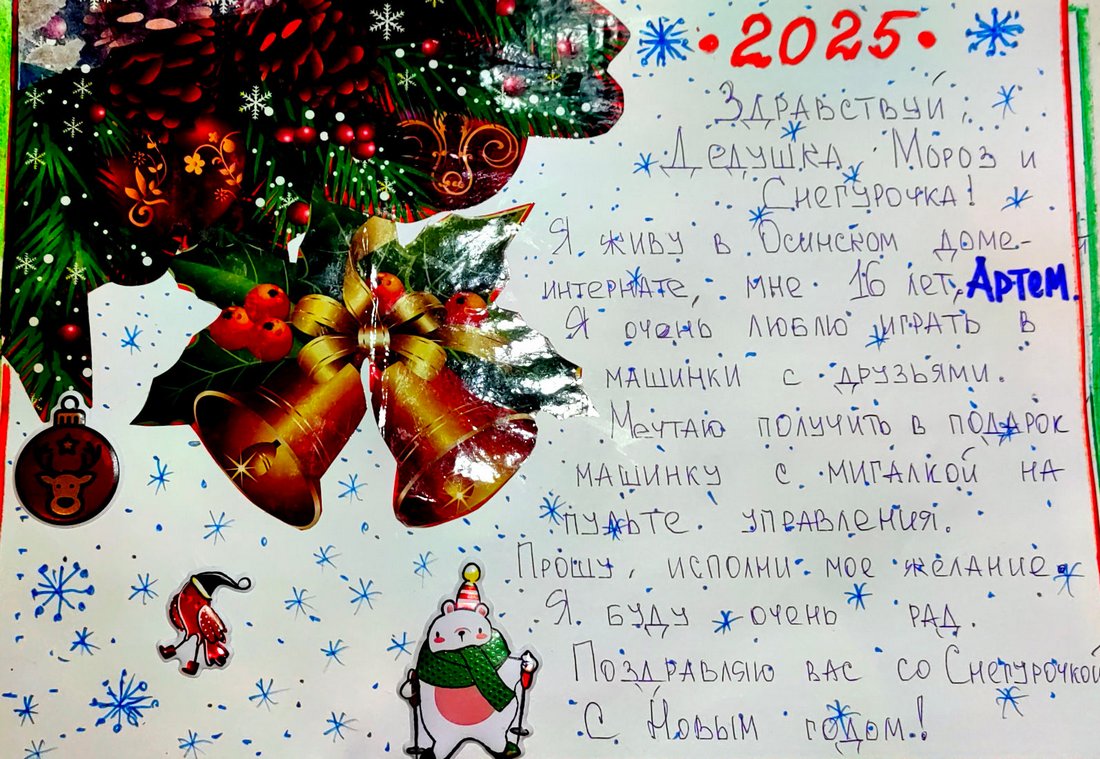 • 2025 •
Здравствуй,
Дедушка Мороз и
Снегурочка!
Я живу в Осинском доме-
интернате, мне 16 лет, Артем.
Я очень люблю играть в
машинки с друзьями.
Мечтаю получить в подарок
машинку с мигалкой на
пульте управления.
Прошу, исполни мое желание.
Я буду очень рад.
Поздравляю вас со Снегурочкой
С Новым годом!